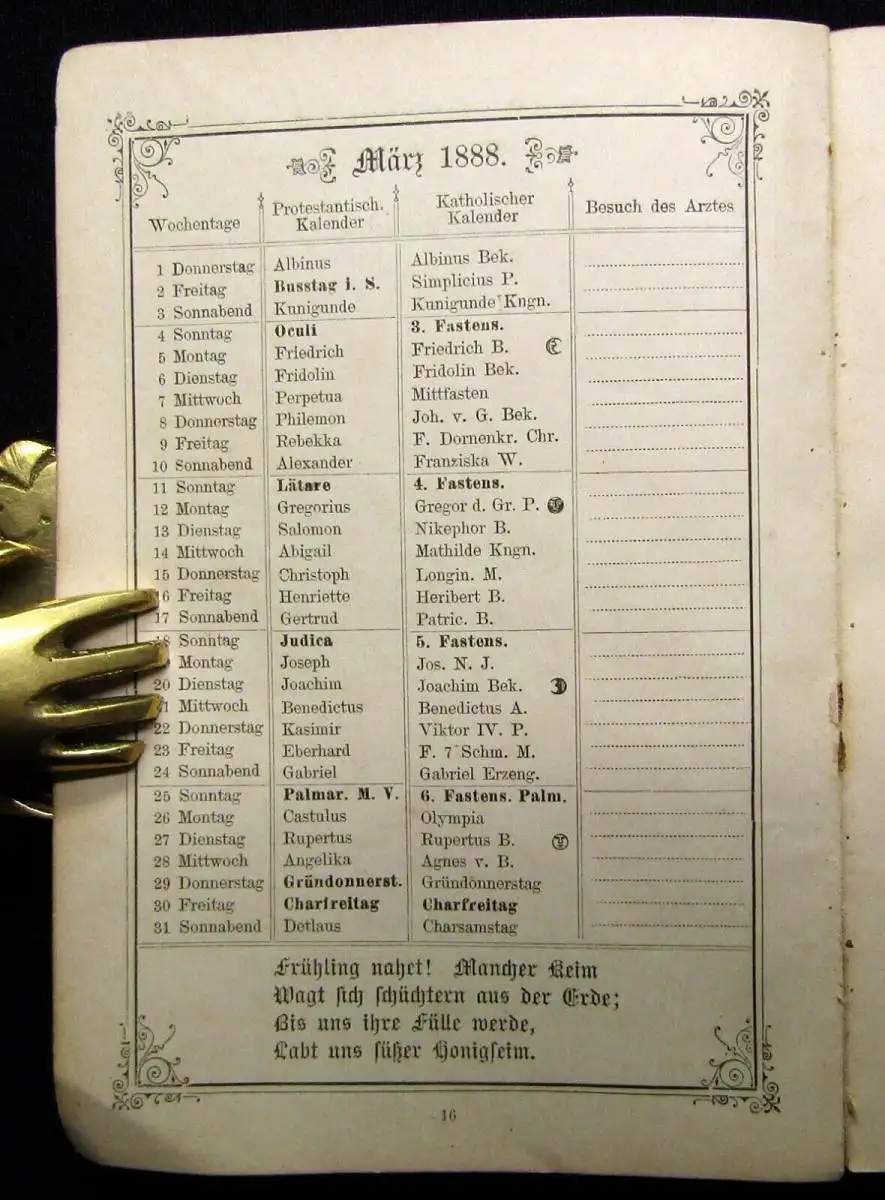 März 1888.
Wochentage Protestantisch. Kalender Katholischer Kalender Besuch des Arztes
1 Donnerstag Albinus Albinus Bek.
2 Freitag Busstag i. S. Simplicius P.
3 Sonnabend Kunigunde Kunigunde Kngn.
4 Sonntag Oculi 3. Fastens.
5 Montag Friedrich Friedrich B.
6 Dienstag Fridolin Fridolin Bek.
7 Mittwoch Perpetua Mittfasten
8 Donnerstag Philemon Joh. v. G. Bek.
9 Freitag Rebekka F. Dornenkr. Chr.
10 Sonnabend Alexander Franziska W.
11 Sonntag Lätare 4. Fastens.
12 Montag Gregorius Gregor d. Gr. P.
13 Dienstag Salomon Nikephor B.
14 Mittwoch Abigail Mathilde Kngn.
15 Donnerstag Christoph Longin. M.
16 Freitag Henriette Heribert B.
17 Sonnabend Gertrud Patric. B.
18 Sonntag Judica 5. Fastens.
Montag Joseph Jos. N. J.
20 Dienstag Joachim Joachim Bek.
21 Mittwoch Benedictus Benedictus A.
22 Donnerstag Kasimir Viktor IV. P.
23 Freitag Eberhard F. 7 Schm. M.
24 Sonnabend Gabriel Gabriel Erzeng.
25 Sonntag Palmar. M. V. 6. Fastens. Palm.
26 Montag Castulus Olympia
27 Dienstag Rupertus Rupertus B.
28 Mittwoch Angelika Agnes v. B.
29 Donnerstag Gründonnerst. Gründonnerstag
30 Freitag Charfreitag Charfreitag
31 Sonnabend Detlaus Charsamstag
Frühling nahet! Mancher Keim
Wagt sich schüchtern aus der Erde;
Bis uns ihre Fülle werde,
Labt uns süßer Honigseim.
16